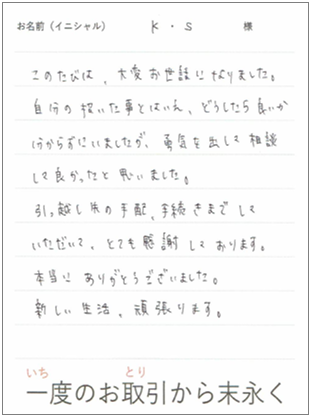 お名前（イニシャル） K・S 様
このたびは、大変お世話になりました。
自分の招いた事とはいえ、どうしたら良いか
分からずにいましたが、勇気を出して相談
して良かったと思いました。
引っ越し先の手配、手続きまでして
いただいて、とても感謝しております。
本当にありがとうございました。
新しい生活、頑張ります。
いち とり
一度のお取引から末永く